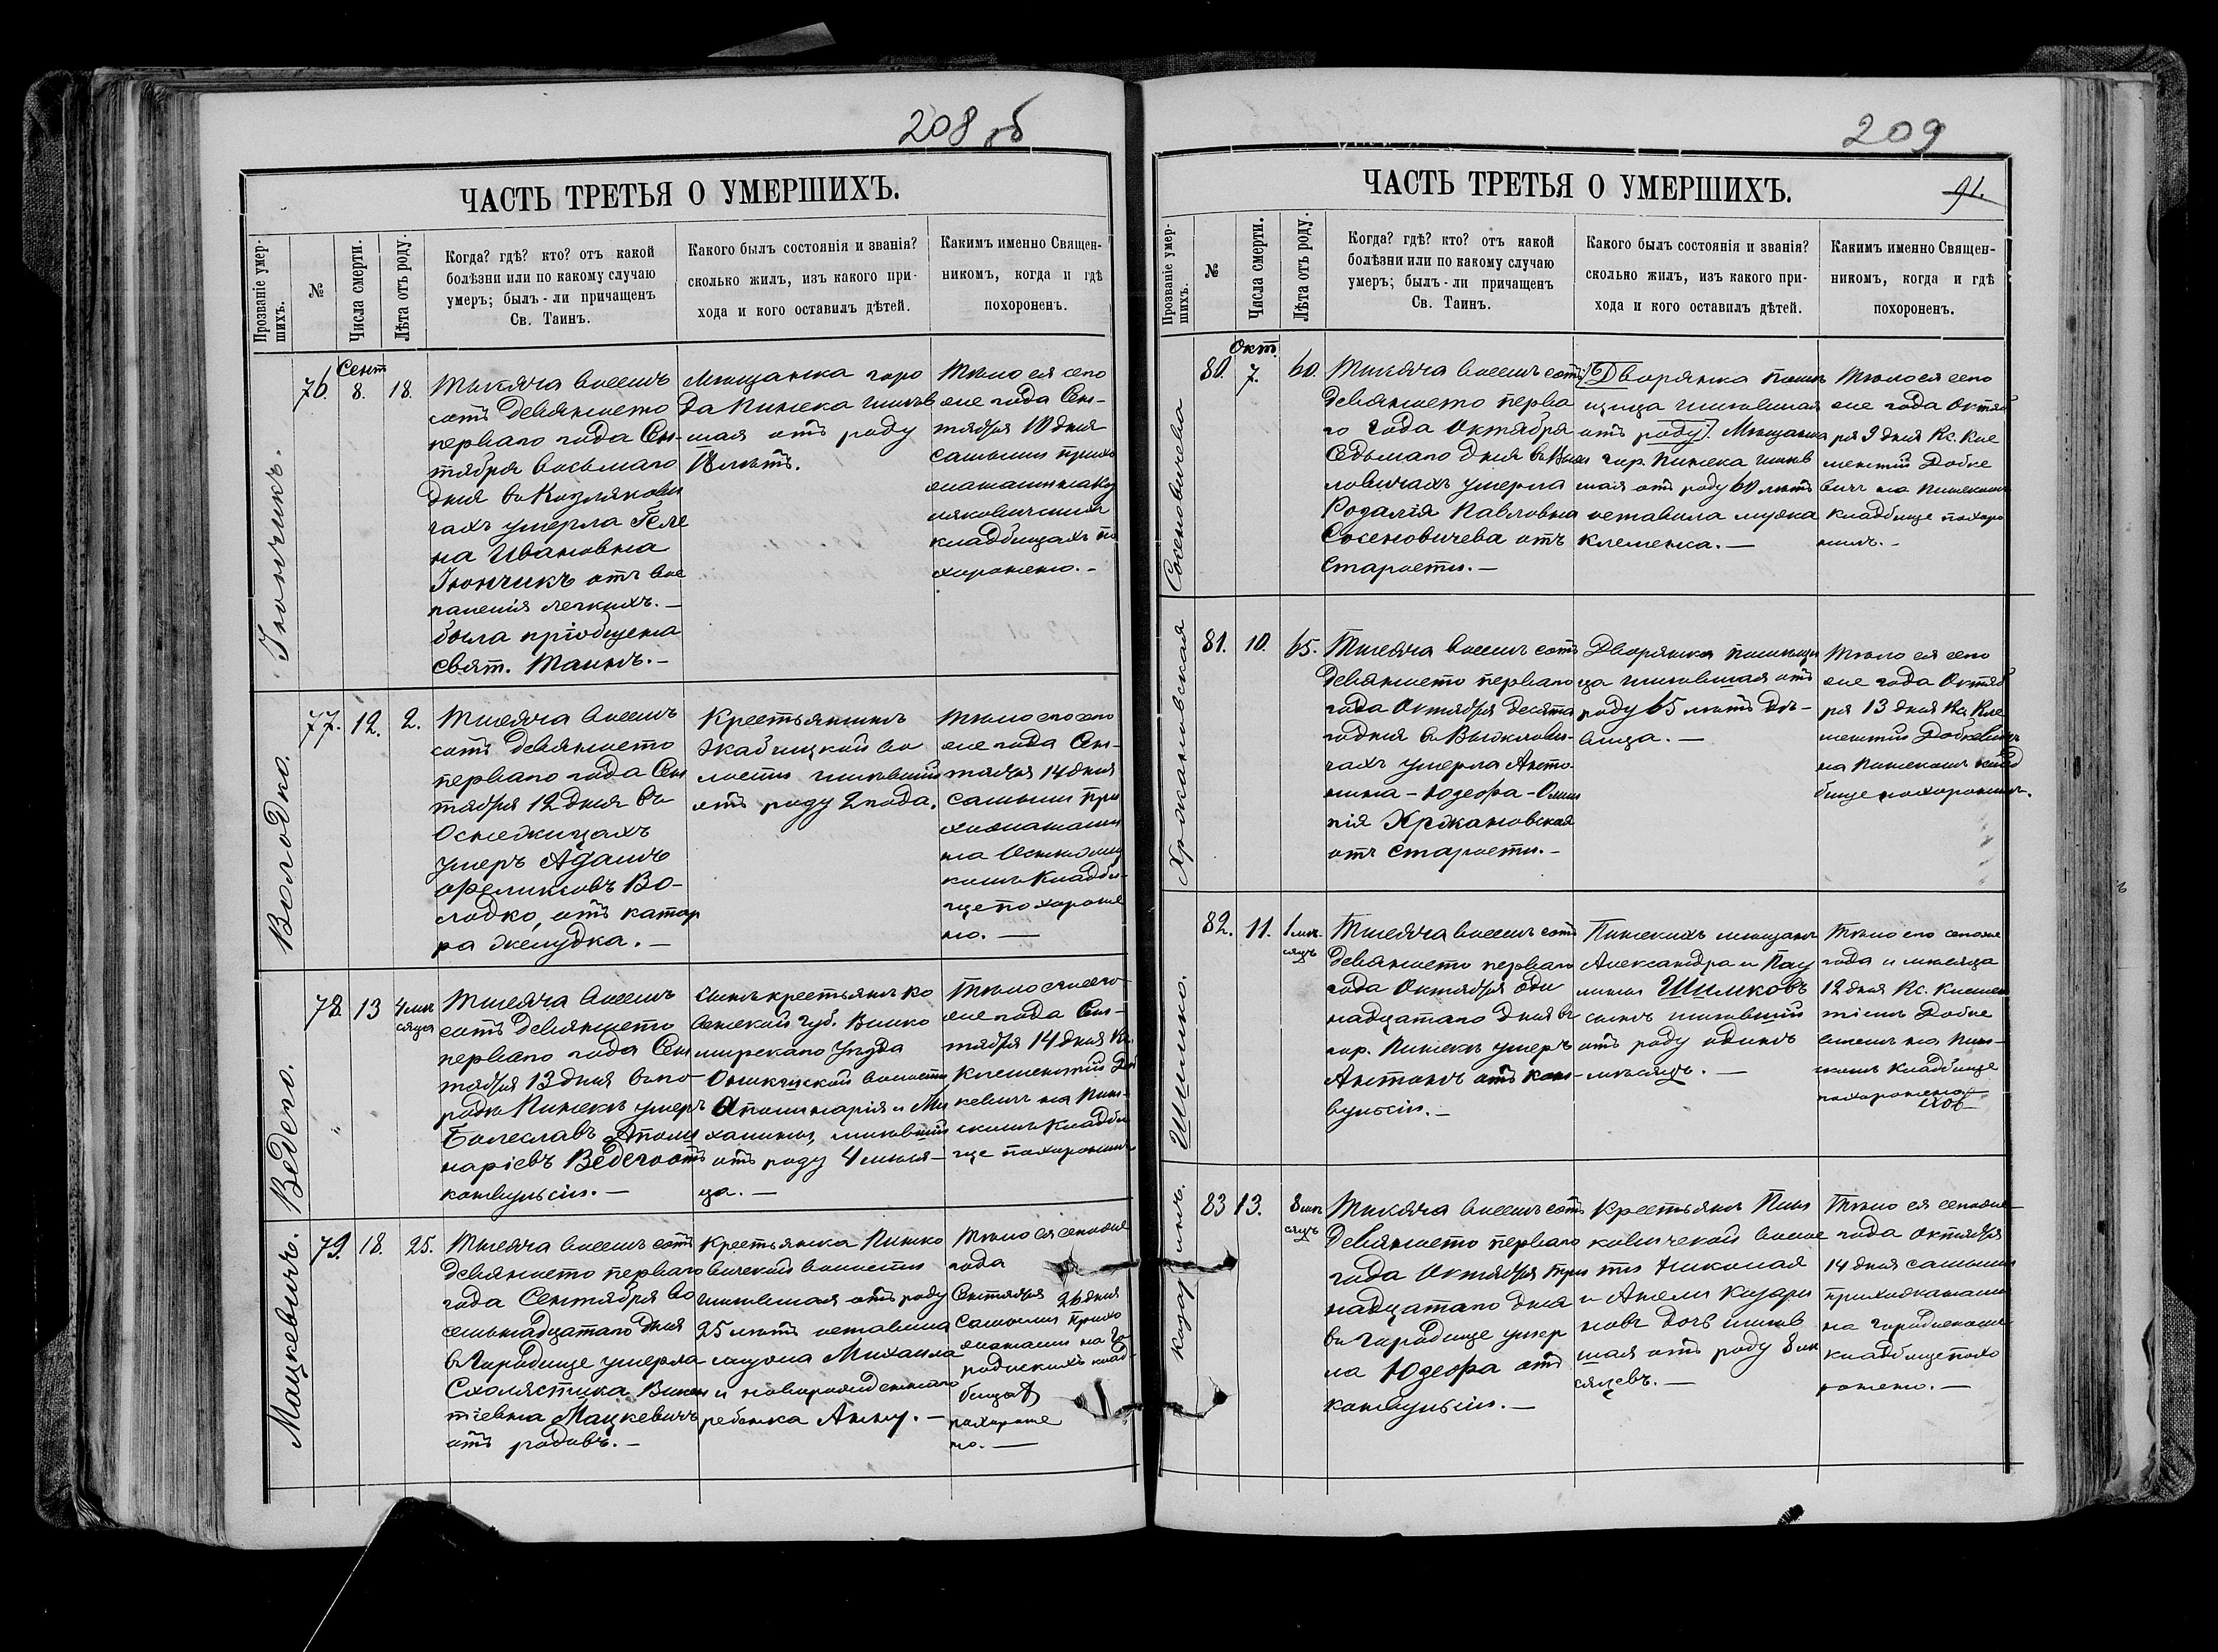 208 об
ЧАСТЬ ТРЕТЬЯ О УМЕРШИХЪ.
Прозваніе умер-
шихъ.
№
Числа смерти.
Лѣта отъ роду.
Когда? гдѣ? кто? отъ какой
болѣзни или по какому случаю
умеръ; былъ-ли причащенъ
Св. Таинъ.
Какого былъ состоянія и званія?
сколько жилъ, изъ какого при-
хода и кого оставилъ дѣтей.
Какимъ именно Священ-
никомъ, когда и гдѣ
похороненъ.
Гнончикъ.
76.
Сент
8.
18.
Тысяча восемь
сотъ девяносто
перваго года Сен-
тября восьмаго
дня въ Козлякови
чахъ умерла Геле
на Ивановна
Гнончикъ отъ вос
паленія легкихъ.—
была пріобщена
свят. Таинъ.—
Мѣщанка горо
да Пинска жив
шая отъ роду
18 лѣтъ.
Тѣло ея сего
же года Сен-
тября 10 дня
самыми прихо
жанами на Коз
ляковичскихъ
кладбищахъ по
хоронено.-
Володко.
77.
12.
2.
Тысяча восемь
сотъ девяносто
перваго года Сен
тября 12 дня въ
Оснежицахъ
умеръ Адамъ
Феликсовъ Во-
лодко, отъ катар
ра желудка.—
Крестьянинъ
Жабчицкой во
лости жившій
отъ роду 2 года.
Тѣло его сего
же года Сен-
тября 14 дня
самыми при
хожанами
на Оснежиц
комъ кладби-
ще похороне
но.—
Ведего.
78.
13
4 мѣ
сяца
Тысяча восемь
сотъ девяносто
перваго года Сен
тября 13 дня въ го-
родѣ Пинскѣ умеръ
Болеславъ Аполи
наріевъ Ведего отъ
конвульсіи.—
Сынъ крестьянъ Ко
венской губ. Вилко
мирскаго Уѣзда
Оникшской волости
Аполинарія и Ми
халины, жившій
отъ роду 4 мѣся-
ца.—
Тѣло его сего-
же года Сен-
тября 14 дня Кс.
Клементій Доб
кевичъ на Пин-
скомъ кладби
ще похоронилъ
Мацкевичъ.
79.
18.
25.
Тысяча восемь сотъ
девяносто перваго
года Сентября во
семнадцатаго дня
въ Городище умерла
Схолястика Викен
тіевна Мацкевичъ
отъ родовъ.—
Крестьянка Пинко
вичской волости
жившая отъ роду
25 лѣтъ оставила
мужа Михаила
и новорожденнаго
ребенка Анну.—
Тѣло ея сегоже
года
Сентября 20 дня
самыми прихо
жанами на Го
родискихъ клад
бищахъ
похороне
но.—
209
ЧАСТЬ ТРЕТЬЯ О УМЕРШИХЪ.
91.
Прозваніе умер-
шихъ.
№
Числа смерти.
Лѣта отъ роду.
Когда? гдѣ? кто? отъ какой
болѣзни или по какому случаю
умеръ; былъ-ли причащенъ
Св. Таинъ.
Какого былъ состоянія и званія?
сколько жилъ, изъ какого при-
хода и кого оставилъ дѣтей.
Какимъ именно Священ-
никомъ, когда и гдѣ
похороненъ.
Сосновичева
80.
Окт.
7.
60.
Тысяча восемь сотъ
девяносто перва
го года Октября
седьмаго дня въ Выж
ловичахъ умерла
Розалія Павловна
Сосеновичева отъ
старости.—
Дворянка помѣ
щица жившая
отъ роду). Мѣщанка
гор. Пинска жив
шая отъ роду 60 лѣтъ
оставила мужа
Клеменса.—
Тѣло ея сего
же года Октяб
ря 9 дня Кс. Кле
ментій Добке
вичъ на Пинскомъ
кладбище похоро
нилъ.-
Хржановская
81.
10.
65.
Тысяча восемь сотъ
девяносто перваго
года Октября десята
го дня въ Выжлови-
чахъ умерла Анто
нина-Юзефа-Олим
пія Хржановская
отъ старости.—
Дворянка помѣщи
ца жившая отъ
роду 65 лѣтъ дѣ-
вица.—
Тѣло ея сего
же года Октяб
ря 13 дня Кс. Кле
ментій Добкевичъ
на Пинскомъ клад
бище похоронилъ.
Шимко.
82.
11.
1 мѣ-
сяцъ
Тысяча восемь сотъ
девяносто перваго
года Октября оди
надцатаго дня въ
гор. Пинскѣ умеръ
Антонъ отъ кон-
вульсіи.—
Пинскихъ мѣщанъ
Александра и Пау
лины Шимковъ
сынъ жившій
отъ роду одинъ
мѣсяцъ.—
Тѣло его сегоже
года и мѣсяца
12 дня Кс. Клемен
тіемъ Добке
вичемъ на Пин-
скомъ кладбище
похоронено
83
13.
8 мѣ
сяцъ
Тысяча восемь сотъ
девяносто перваго
года Октября три
надцатаго дня
въ Городище умер
ла Юзефа отъ
конвульсіи.—
Крестьянъ Пин
ковичской волос
ти Николая
и Анели Казари
новъ дочь жив
шая отъ роду 8 мѣ
сяцевъ.—
Тѣло ея сегоже
года Октября
14 дня самыми
прихожанами
на Городискомъ
кладбище похо
ронено.—